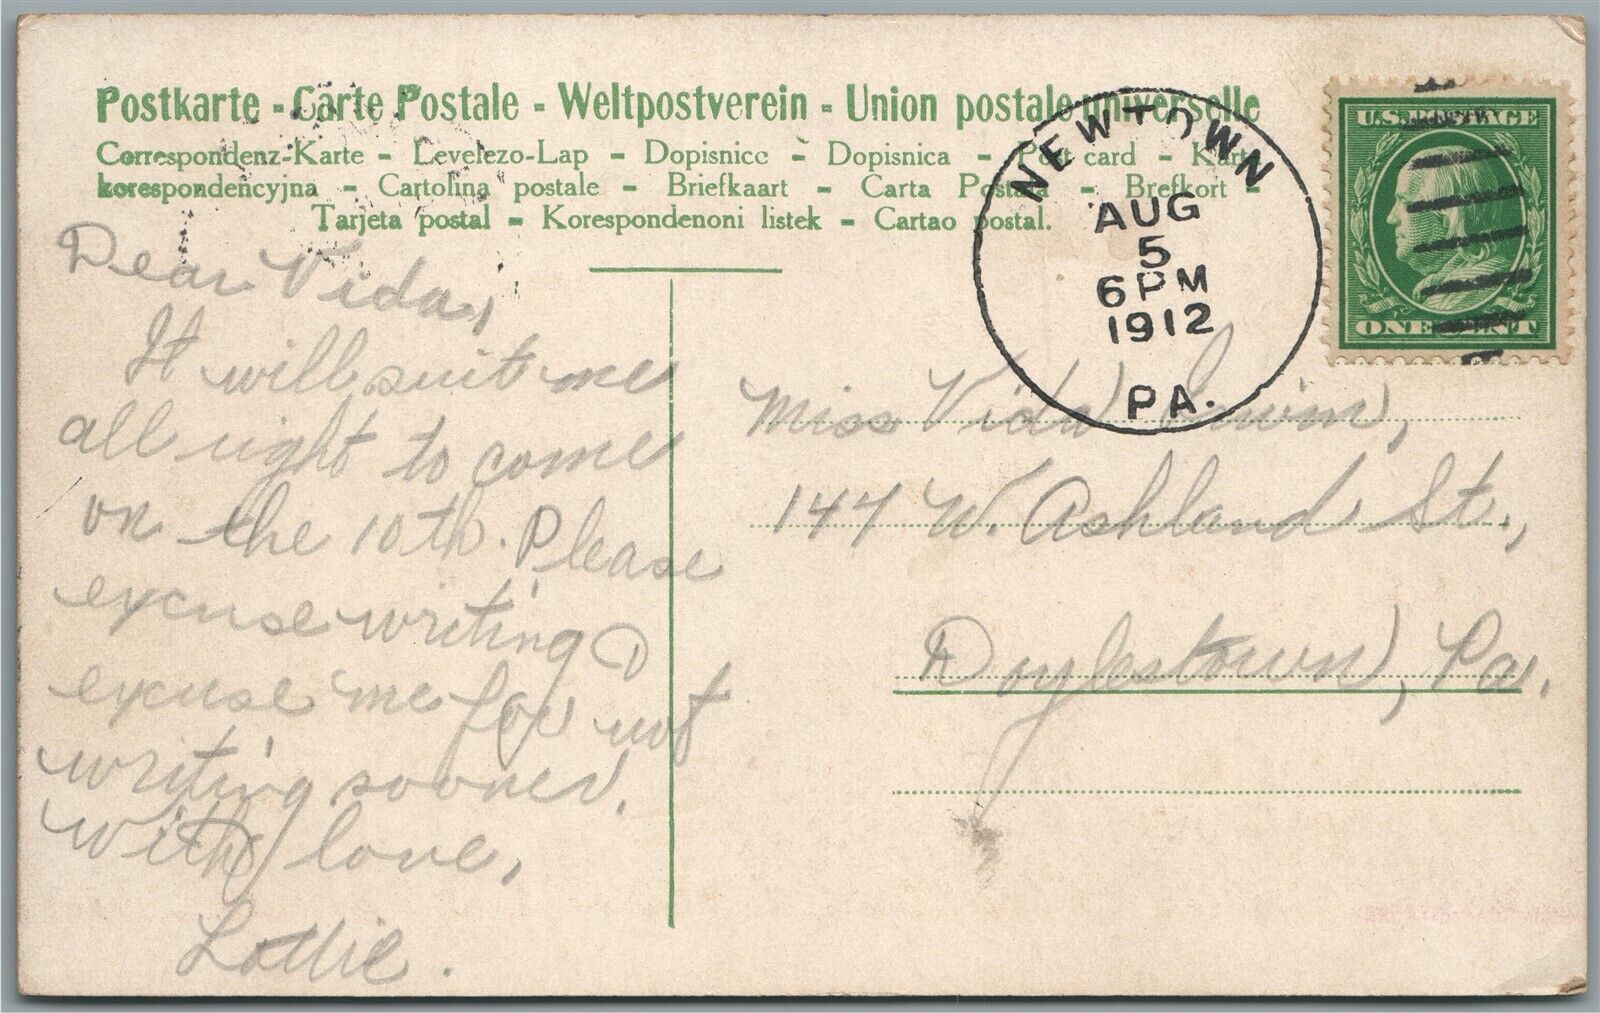 Postkarte - Carte Postale - Weltpostverein - Union postale universelle
Correspondenz-Karte - Levelezo-Lap - Dopisnice - Dopisnica - Post card - Karta
korespondencyjna - Cartolina postale - Briefkaart - Carta Postala - Brefkort -
Tarjeta postal - Korespondenoni listek - Cartao postal.
NEWTOWN
AUG
5
6 PM
1912
PA.
U.S. POSTAGE
ONE CENT
Dear Vida,
It will suit me
all right to come
on the 10th. Please
excuse writing &
excuse me for not
writing sooner.
With love,
Lottie.
Miss Vida
147 W. Ashland St.,
Doylestown, Pa.